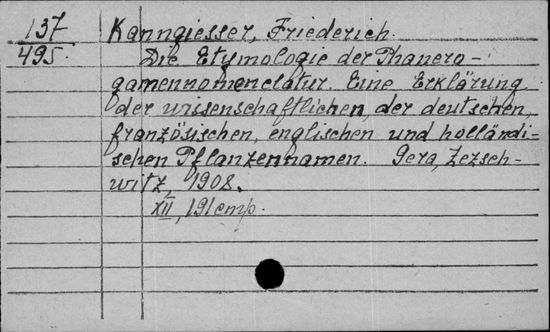 137 Kanngiesser, Friederich.
495. Die Etymologie der Phanero-
gamennomenclatur. Eine Erklärung
der wissenschaftlichen, der deutschen,
französischen, englischen und holländi-
schen Pflanzennamen. Gera, Zezsch-
witz, 1908.
XII, 191 cmp.